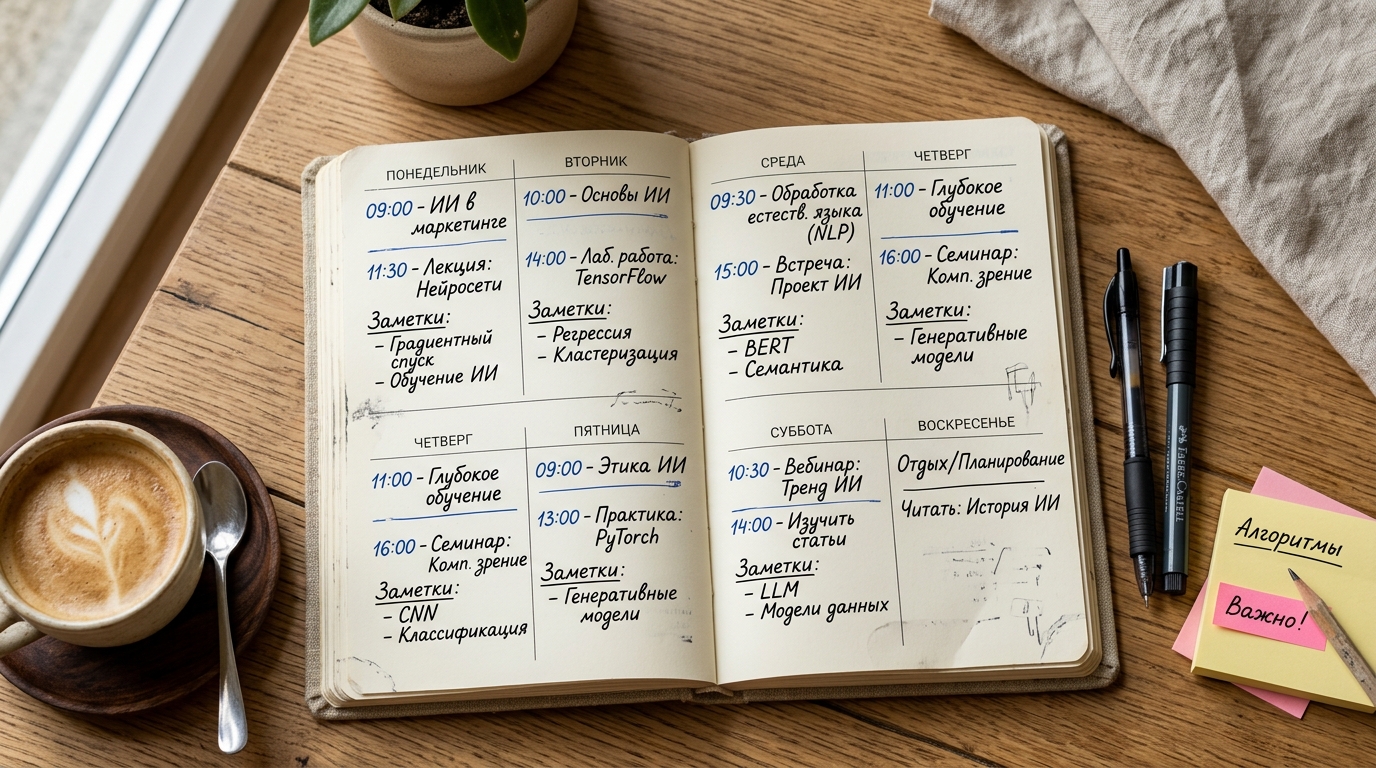 ПОНЕДЕЛЬНИК
09:00 – ИИ в
маркетинге
11:30 – Лекция:
Нейросети
Заметки:
– Градиентный
спуск
– Обучение ИИ
ВТОРНИК
10:00 – Основы ИИ
14:00 – Лаб. работа:
TensorFlow
Заметки:
– Регрессия
– Кластеризация
ЧЕТВЕРГ
11:00 – Глубокое
обучение
16:00 – Семинар:
Комп. зрение
Заметки:
– CNN
– Классификация
ПЯТНИЦА
09:00 – Этика ИИ
13:00 – Практика:
PyTorch
Заметки:
– Генеративные
модели
СРЕДА
09:30 – Обработка
естеств. языка
(NLP)
15:00 – Встреча:
Проект ИИ
Заметки:
– BERT
– Семантика
ЧЕТВЕРГ
11:00 – Глубокое
обучение
16:00 – Семинар:
Комп. зрение
Заметки:
– Генеративные
модели
СУББОТА
10:30 – Вебинар:
Тренд ИИ
14:00 – Изучить
статьи
Заметки:
– LLM
– Модели данных
ВОСКРЕСЕНЬЕ
Отдых/Планирование
Читать: История ИИ
Алгоритмы
Важно!